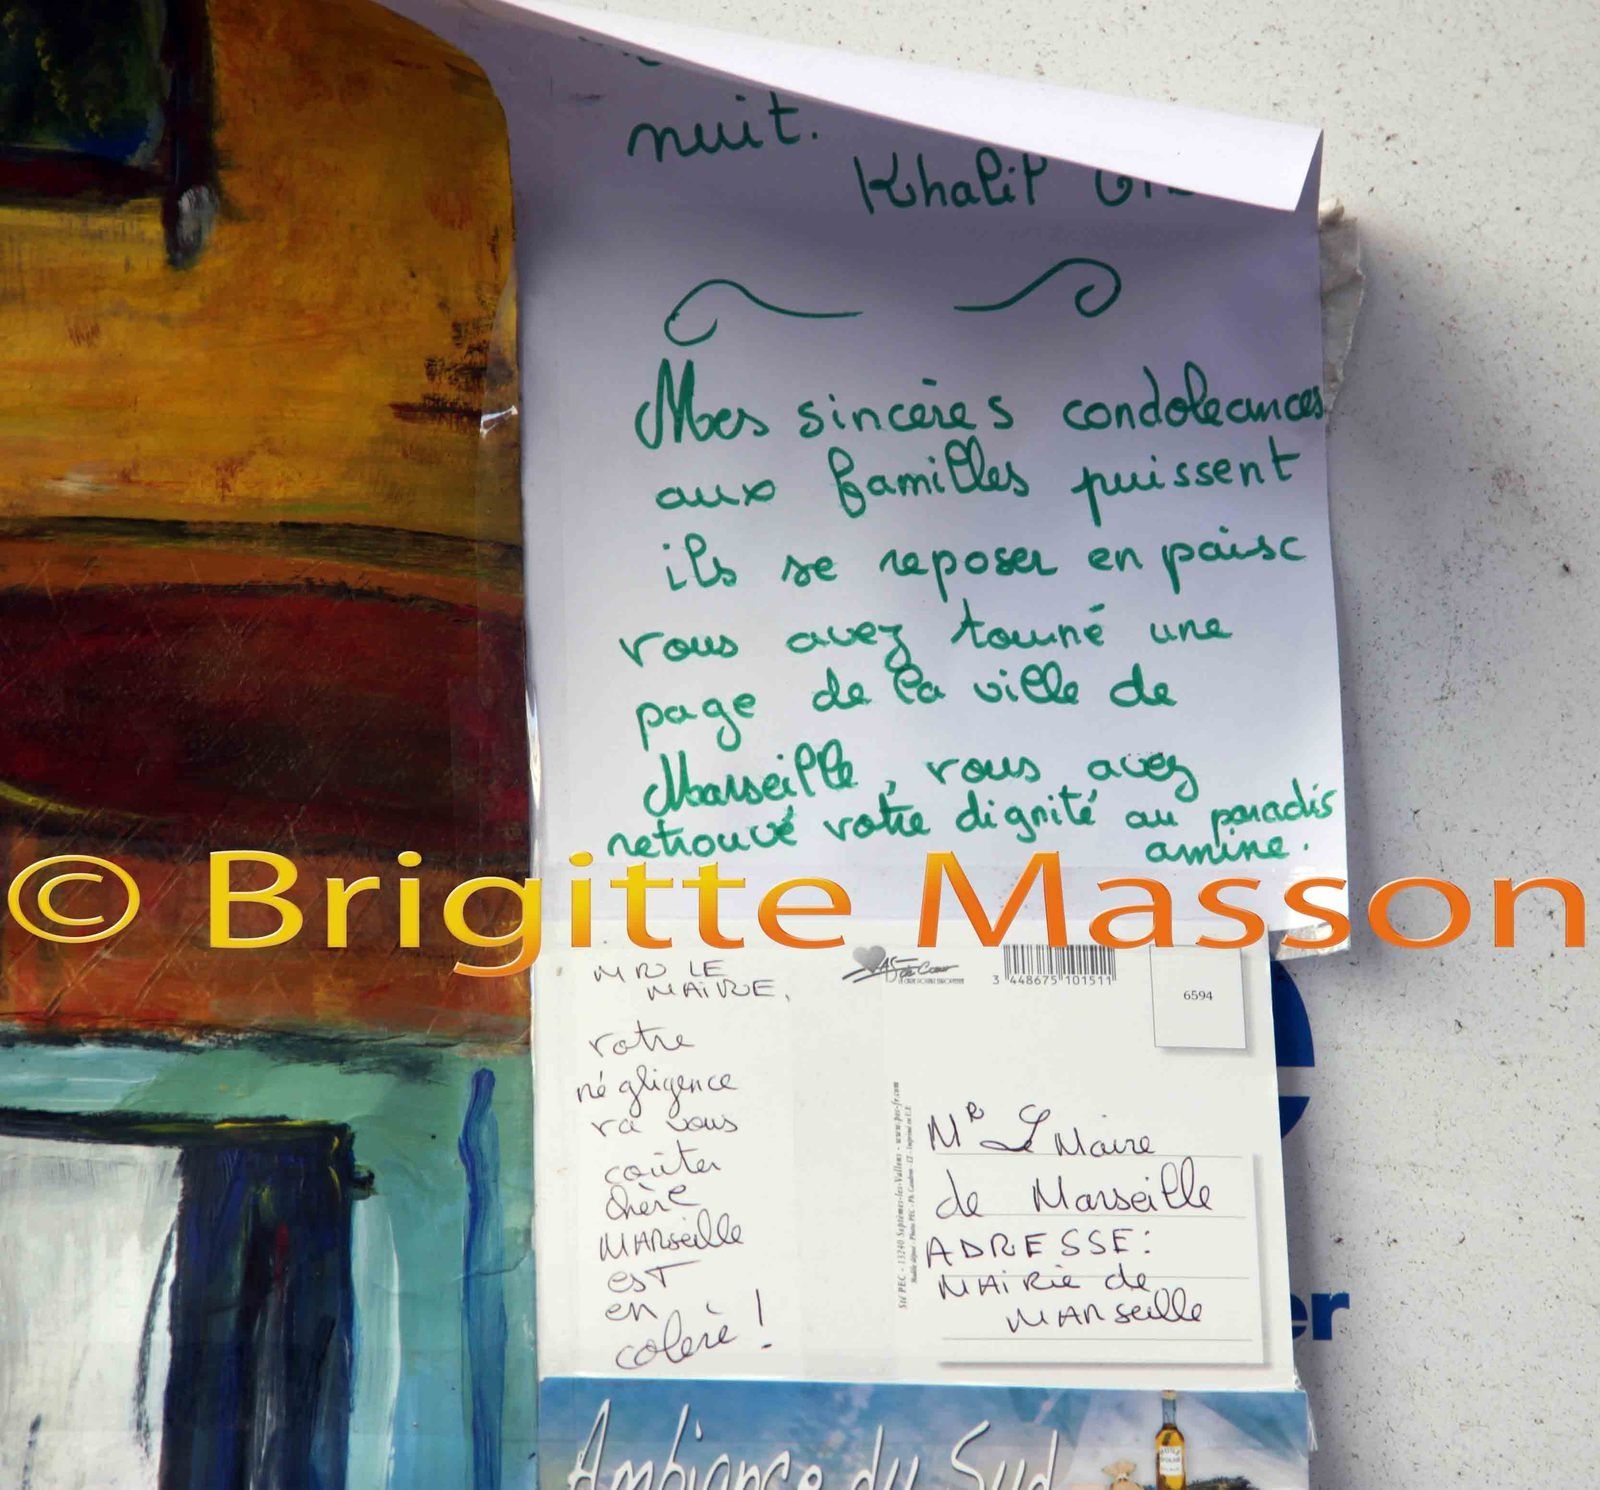 nuit.
Khalil
Mes sincères condoleances
aux familles puissent
ils se reposer en paix
vous avez tourné une
page de la ville de
Marseille, vous avez
retrouvé votre dignité au paradis
amine.
© Brigitte Masson
MR LE
MAIRE,
votre
négligence
va vous
coûter
chère
MARSEille
EST
en
colerè !
3 448675 101511
6594
MR Le Maire
de Marseille
ADRESSE:
MAIRie de
MARSEille
Sté PEC - 13240 Septèmes-les-Vallons - www.pec-fr.com
Ambiance du Sud
er